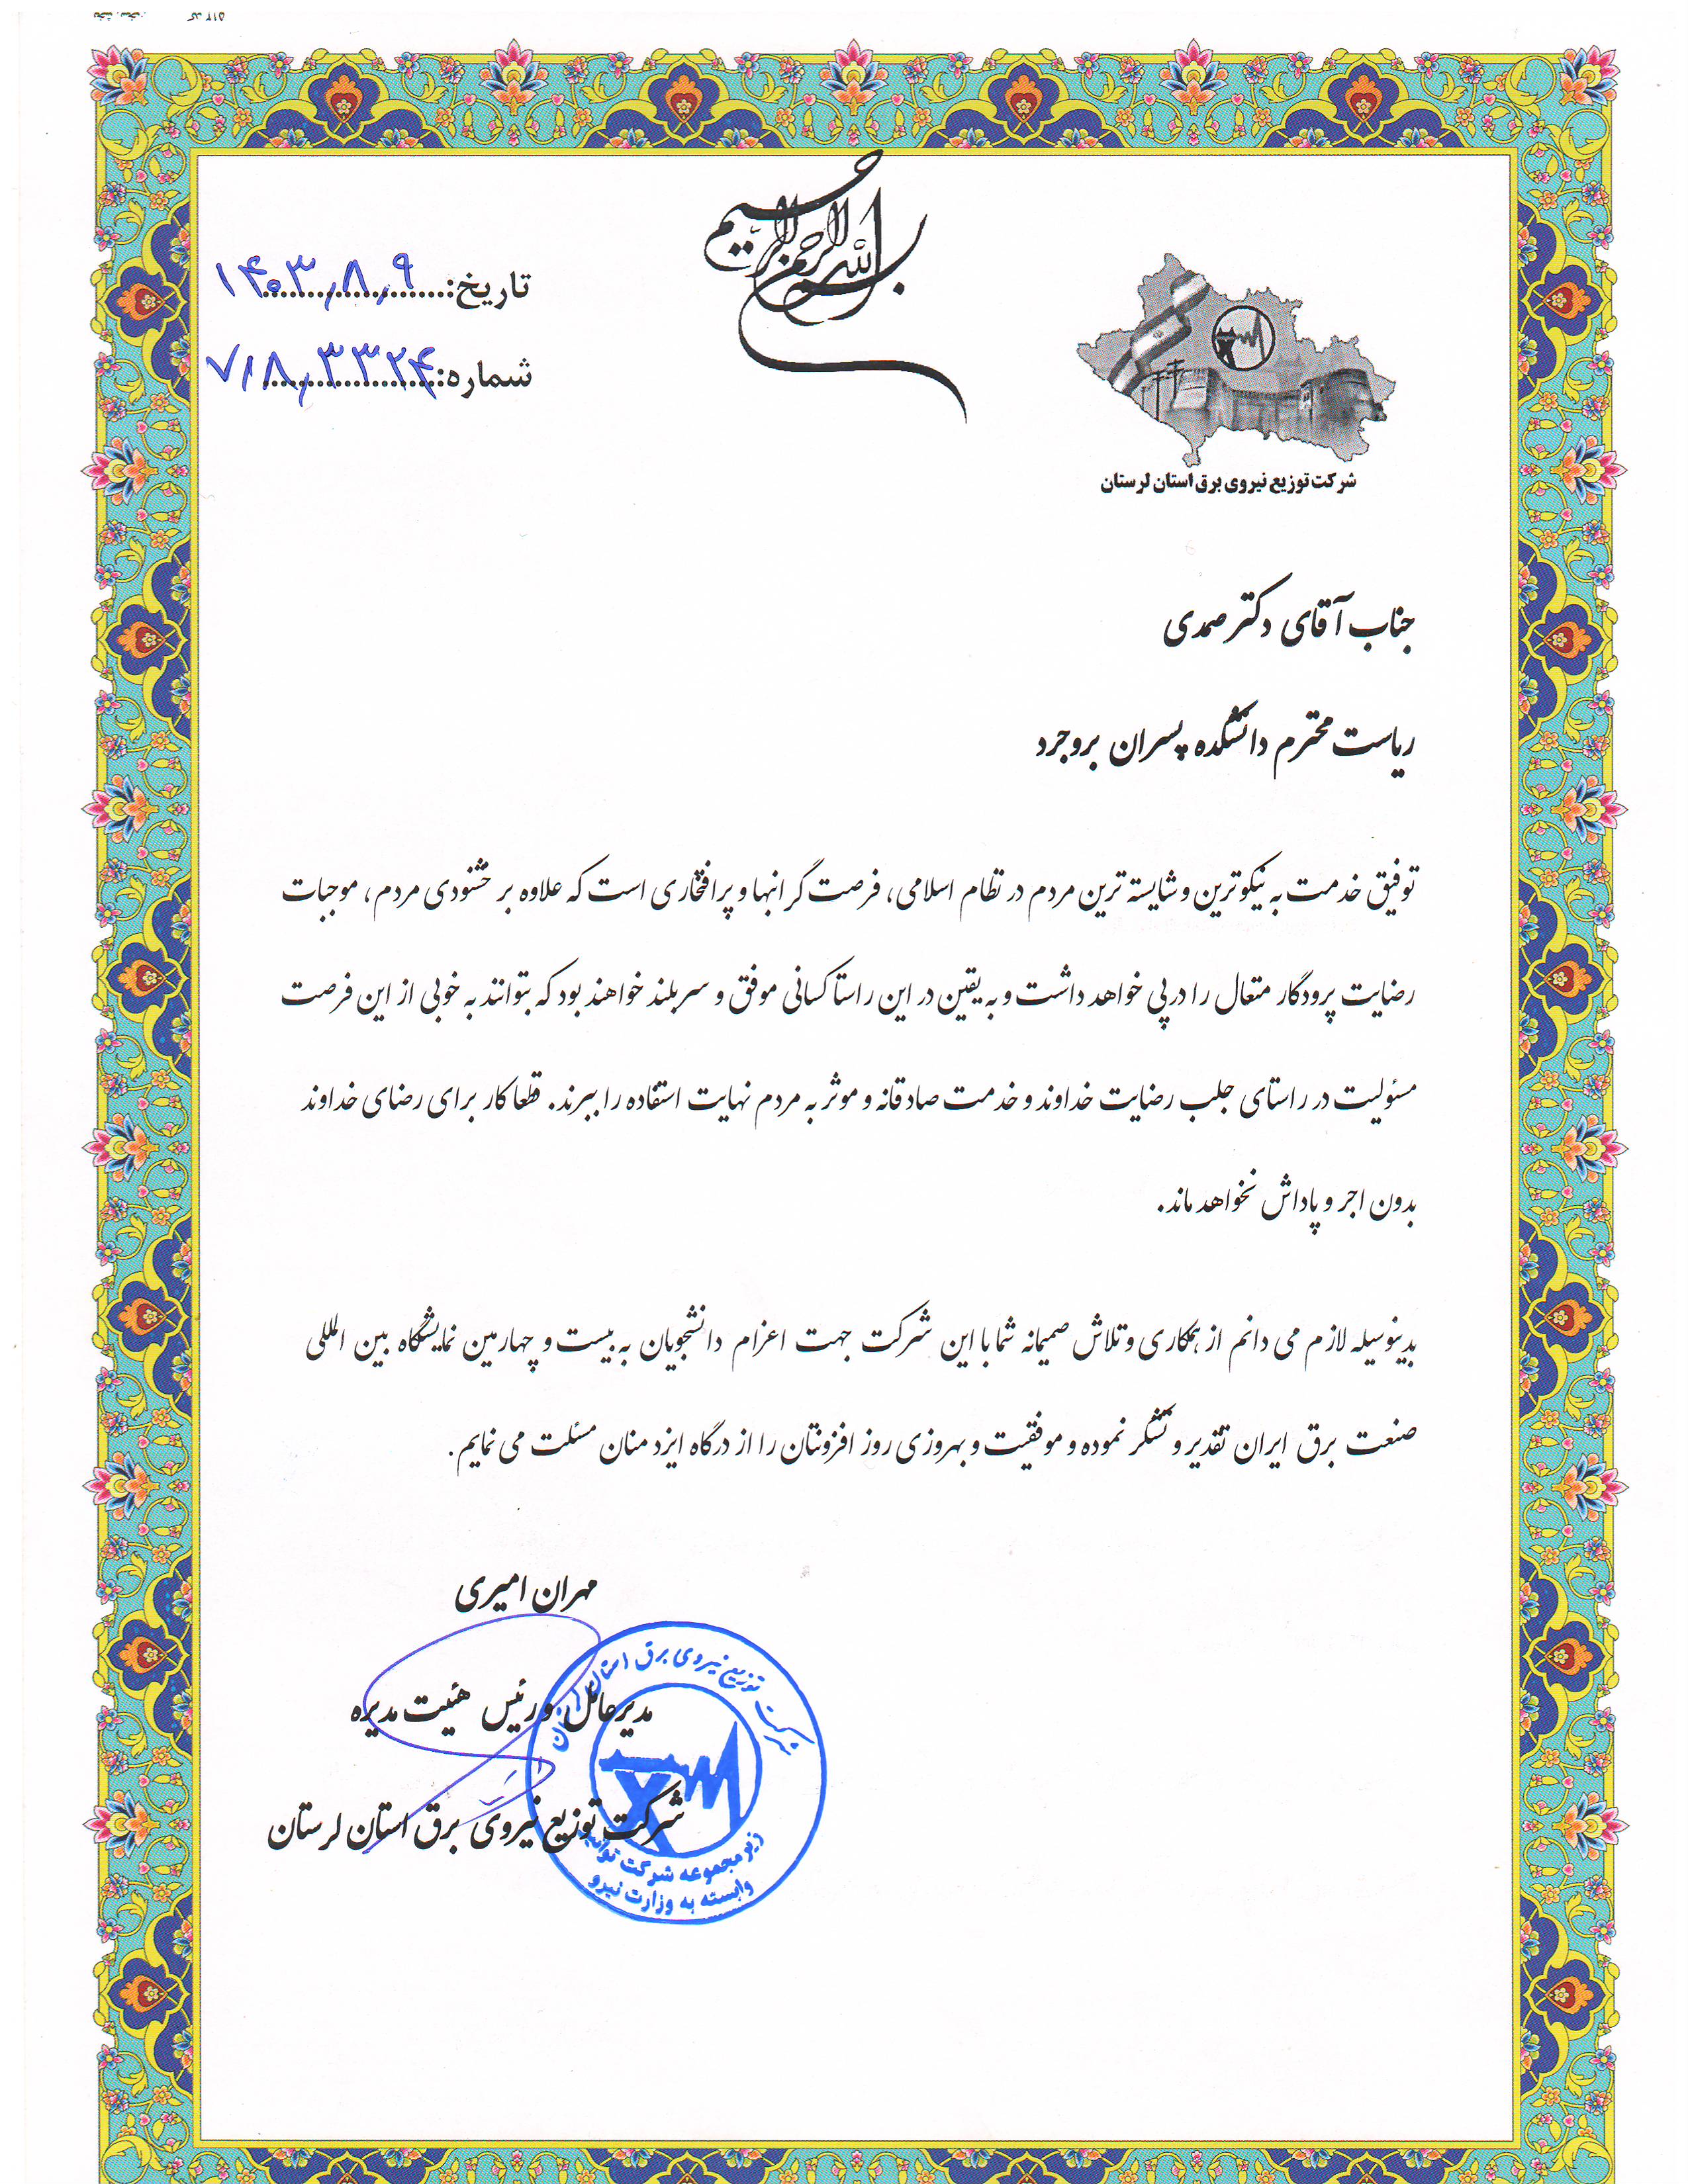 کد ۵۱۲
بسم الله الرحمن الرحیم
تاریخ: ۱۴۰۳/۸/۹
شماره: ۷/۱۸/۳۳۲۴
شرکت توزیع نیروی برق استان لرستان
جناب آقای دکتر صمدی
ریاست محترم دانشکده پسران بروجرد
توفیق خدمت به نیکوترین و شایسته ترین مردم در نظام اسلامی، فرصت گرانبها و پرافتخاری است که علاوه بر خشنودی مردم، موجبات
رضایت پرودگار متعال را در پی خواهد داشت و به یقین در این راستا کسانی موفق و سربلند خواهند بود که بتوانند به خوبی از این فرصت
مسئولیت در راستای جلب رضایت خداوند و خدمت صادقانه و موثر به مردم نهایت استفاده را ببرند. قطعا کار برای رضای خداوند
بدون اجر و پاداش نخواهد ماند.
بدینوسیله لازم می دانم از همکاری و تلاش صمیمانه شما با این شرکت جهت اعزام دانشجویان به بیست و چهارمین نمایشگاه بین المللی
صنعت برق ایران تقدیر و تشکر نموده و موفقیت و بهروزی روز افزونتان را از درگاه ایزد منان مسئلت می نمایم.
مهران امیری
مدیرعامل و رئیس هئیت مدیره
شرکت توزیع نیروی برق استان لرستان
شرکت توزیع نیروی برق استان لرستان
زیر مجموعه شرکت توانیر
وابسته به وزارت نیرو